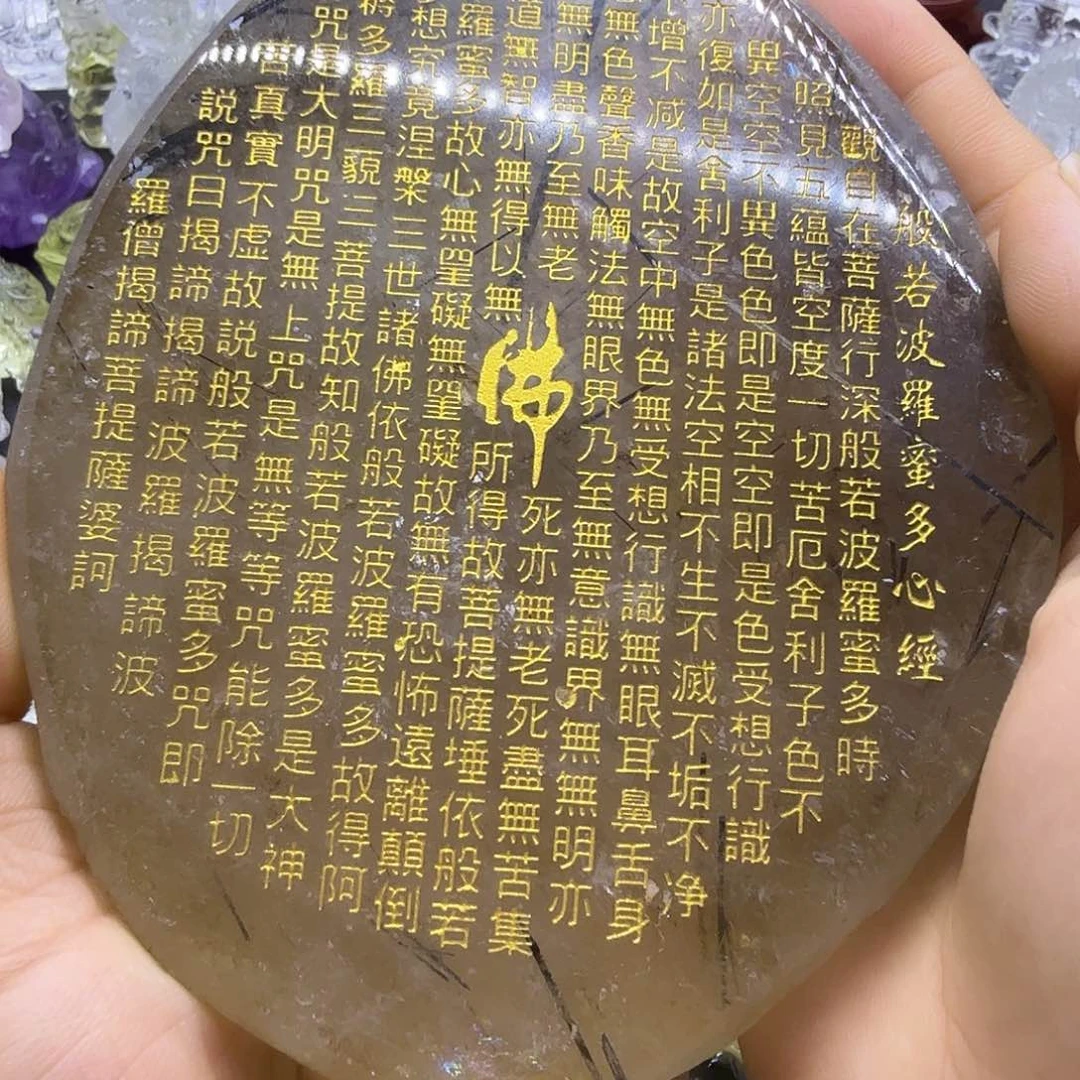 般若波羅蜜多心經
觀自在菩薩行深般若波羅蜜多時
照見五蘊皆空度一切苦厄舍利子色不
異空空不異色色即是空空即是色受想行識
亦復如是舍利子是諸法空相不生不滅不垢不净
增不減是故空中無色無受想行識無眼耳鼻舌身
無色聲香味觸法無眼界乃至無意識界無無明亦
無明盡乃至無老死亦無老死盡無苦集
佛
道無智亦無得以無所得故菩提薩埵依般若
羅蜜多故心無罣礙無罣礙故無有恐怖遠離顛倒
想究竟涅槃三世諸佛依般若波羅蜜多故得阿
耨多羅三藐三菩提故知般若波羅蜜多是大神
咒是大明咒是無上咒是無等等咒能除一切
苦真實不虛故説般若波羅蜜多咒即
説咒曰揭諦揭諦波羅揭諦波
羅僧揭諦菩提薩婆訶